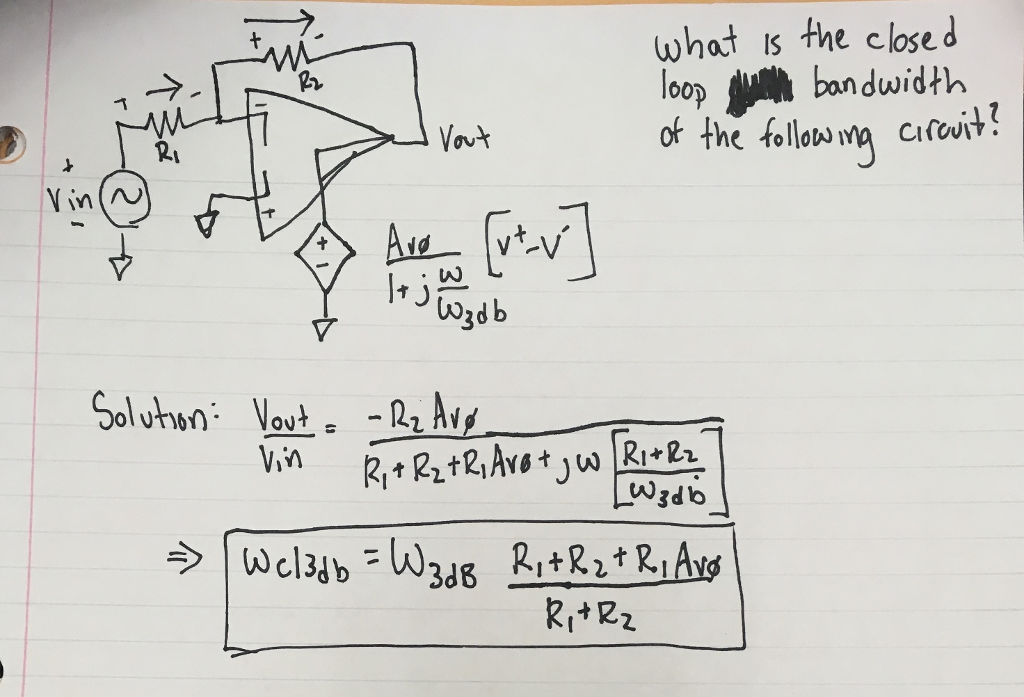 What is the closed
loop bandwidth
of the following circuit?
+ -
R2
+ -
R1
-
+
Vout
+
Vin
-
+
-
Avø
1+j ω/ω3db [v+-v-]
Solution: Vout/Vin = -R2 Avø / R1+R2+R1Avø+jω [R1+R2/ω3db]
⇒ ωcl3db = ω3dB R1+R2+R1Avø / R1+R2